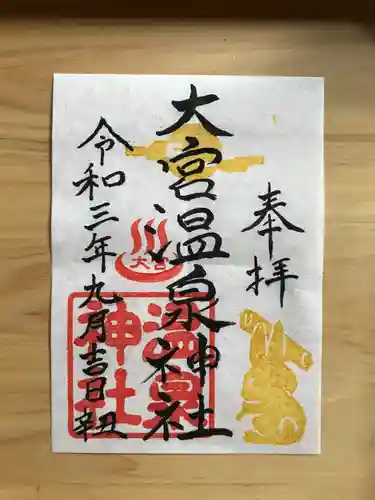 奉拝
大宮温泉神社
大宮
温泉
神社
令和三年九月吉日 辛丑